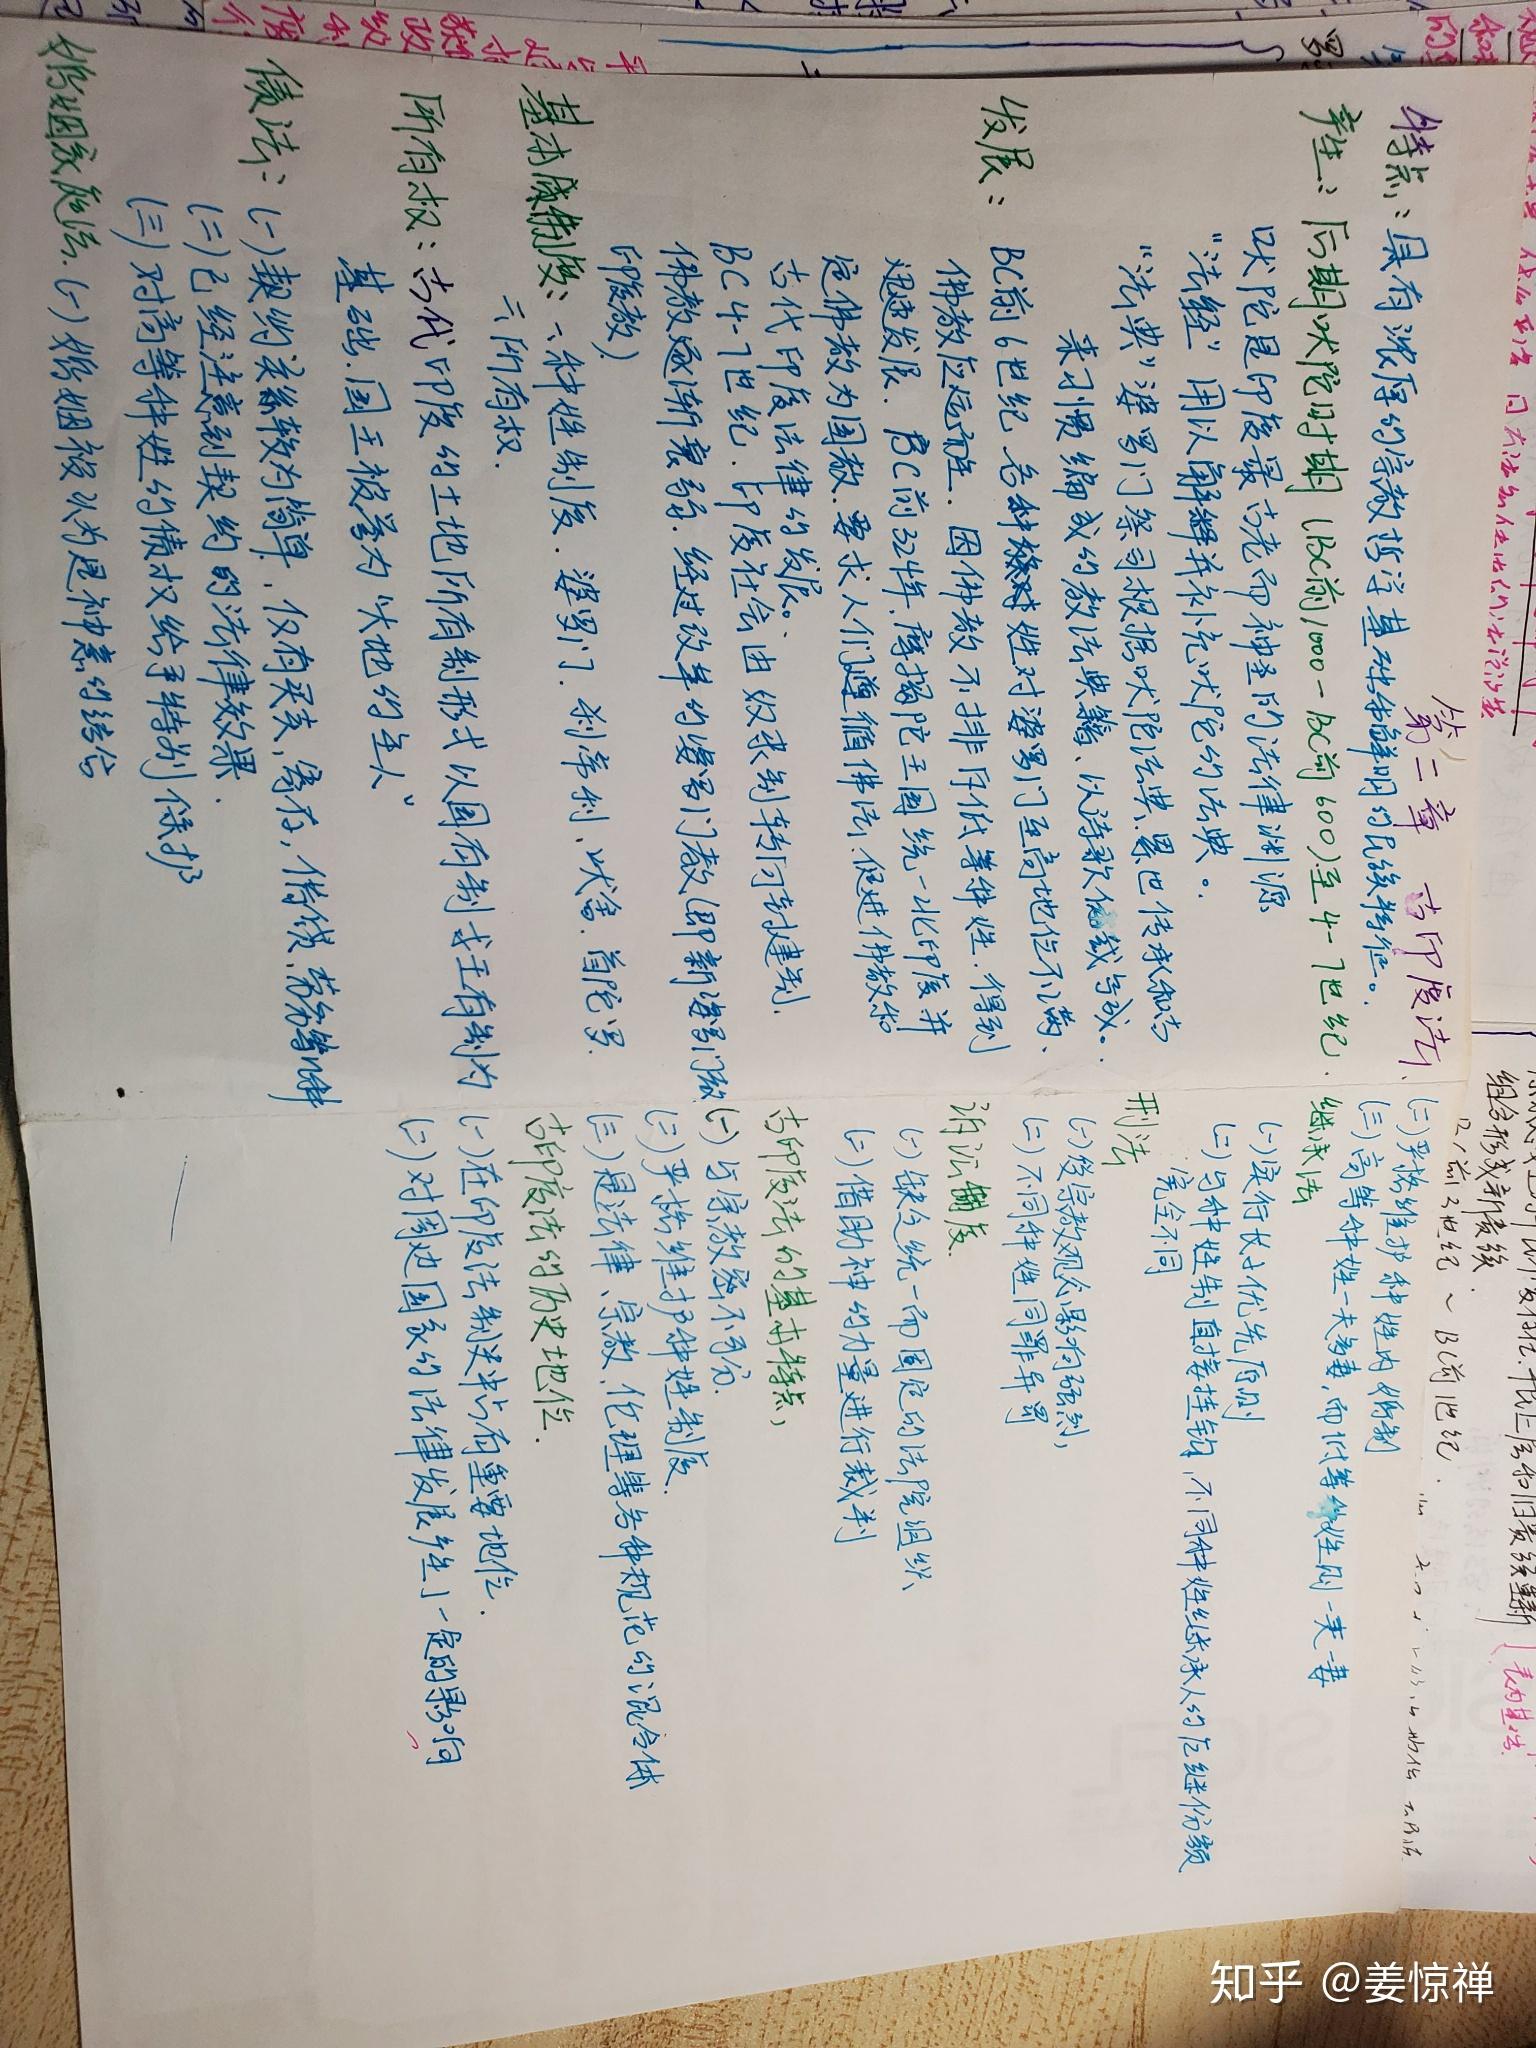 第二章 古印度法
特点：具有浓厚的宗教哲学基础和鲜明的民族特征。
产生：后期吠陀时期（BC前1000-BC前600）至4-7世纪.
吠陀是印度最古老而神圣的法律渊源
"法经"用以解释并补充吠陀的法典。
"法典"婆罗门祭司根据吠陀法典、累世传承和古
来习惯编成的教法典籍、以诗歌体裁写成。
发展：
BC前6世纪各种种姓对婆罗门至高地位不满、
佛教应运而生. 因佛教不排斥低等种姓. 得到
迅速发展. BC前324年, 摩揭陀王国统一北印度并
定佛教为国教. 要求人们遵循佛法. 促进佛教和
古代印度法律的发展。
BC4-7世纪. 印度社会由奴隶制转向封建制.
佛教逐渐衰弱. 经过改革的婆罗门教（即新婆罗门教
印度教）
基本制度：一、种姓制度. 婆罗门. 刹帝利、吠舍. 首陀罗.
二、所有权.
所有权：古代印度的土地所有制形式以国有制或王有制为
基础. 国王被誉为"大地的主人"
债法：(一)契约关系较为简单, 仅有买卖, 寄存, 借贷、劳务等几种
(二)已经注意到契约的法律效果.
(三)对高等种姓的债权给予特别保护
婚姻家庭法. (一)婚姻被认为是神意的结合
(二)严格维护种姓内婚制
(三)高等种姓一夫多妻, 而低等种姓则一夫一妻
继承法
(一)实行长子优先原则
(二)与种姓制直接挂钩, 不同种姓继承人的应继份额
完全不同
刑法
(一)受宗教观念影响强烈,
(二)不同种姓同罪异罚
诉讼制度.
(一)缺乏统一而固定的法院组织
(二)借助神的力量进行裁判
古印度法的基本特点,
(一)与宗教密不可分.
(二)严格维护种姓制度.
(三)是法律、宗教、伦理等各种规范的混合体
古印度法的历史地位.
(一)在印度法制史中占有重要地位.
(二)对周边国家的法律发展产生了一定的影响
组合形成新贵族
知乎 @姜惊禅